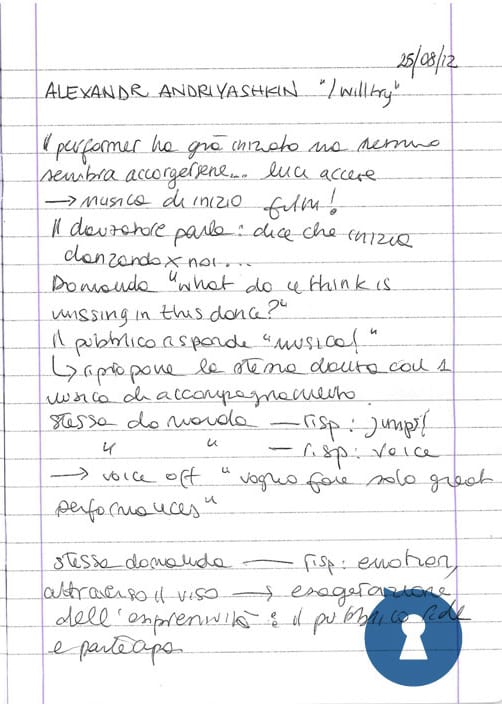 25/08/12
ALEXANDR ANDRIYASHKIN "I will try"
Il performer ha già iniziato ma nessuno
sembra accorgersene... luci accese
→ musica di inizio film!
Il danzatore parla: dice che inizia
danzando x noi...
Domanda "what do u think is
missing in this dance?"
Il pubblico risponde "musica!"
↳ ripropone la stessa danza con 1
musica di accompagnamento.
stessa domanda — risp: jumps!
" " — risp: voice
→ voice off "voglio fare solo great
performances"
stessa domanda — risp: emotion,
attraverso il viso → esagerazione
dell'espressività: il pubblico ride
e partecipa